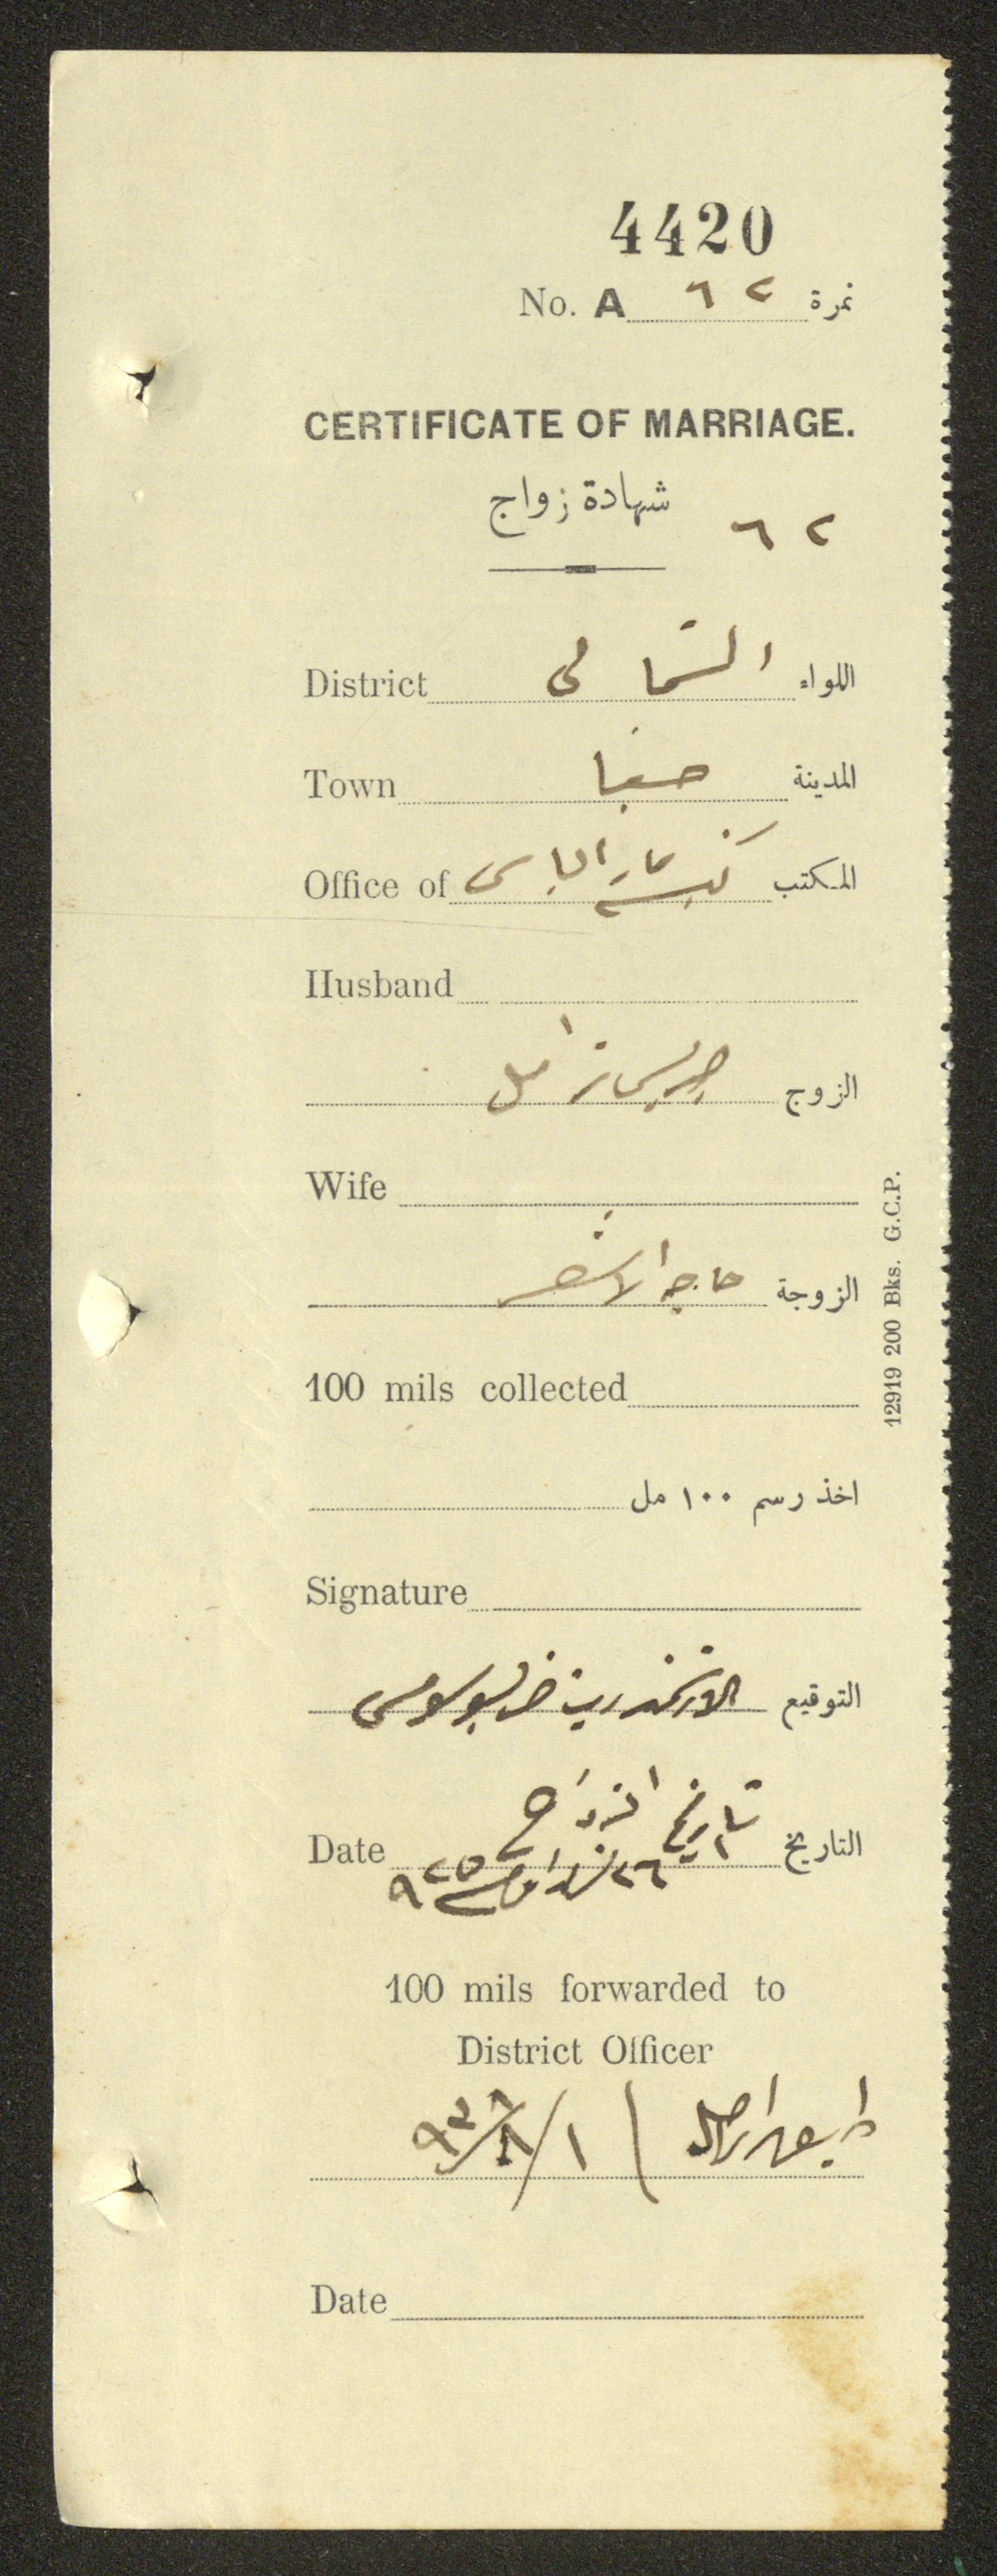 4420
No. A ٦٢ نمرة
CERTIFICATE OF MARRIAGE.
شهادة زواج
٦٢
District الشمالي اللواء
Town حيفا المدينة
Office of كنيسة مار الياس المكتب
Husband
جريس الزوج
Wife
الزوجة
100 mils collected
اخذ رسم ١٠٠ مل
Signature
الارشمندريت التوقيع
تاريخ الزواج
Date ٢٦ ٩٢٥ التاريخ
100 mils forwarded to
District Officer
١/٨/٩٣٨
Date
12919 200 Bks. G.C.P.